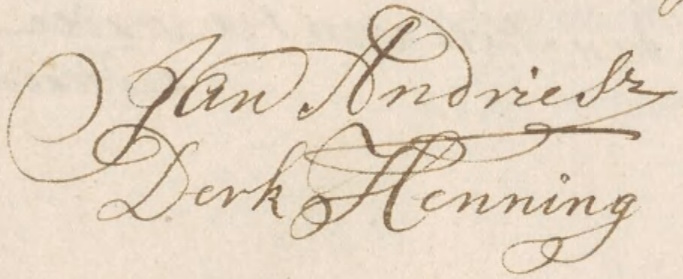 Jan Andriesz
Derk Henning